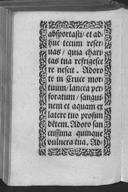 absportasti/ et ad-
huc tecum reser-
uas/ quia chari-
tas tua refrigesce
re nescit. Adoro
te in Cruce mor-
tuum/ lancea per-
foratum/ sangui-
nem et aquam et
latere tuo profun
dētem. Adoro san
ctissima quinque
vulnera tua. Ad-